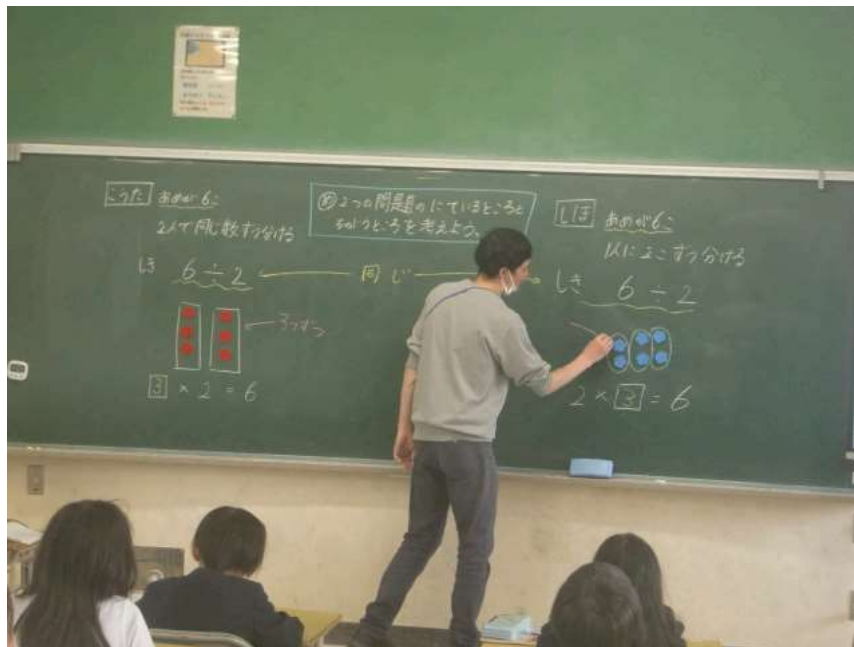 こうた あめが6こ
2人で同じ数ずつ分ける
しき 6÷2
3つずつ
3×2=6
め 2つの問題のにているところと
ちがうところを考えよう。
同じ
しほ あめが6こ
1人に2こずつ分ける
しき 6÷2
2×3=6